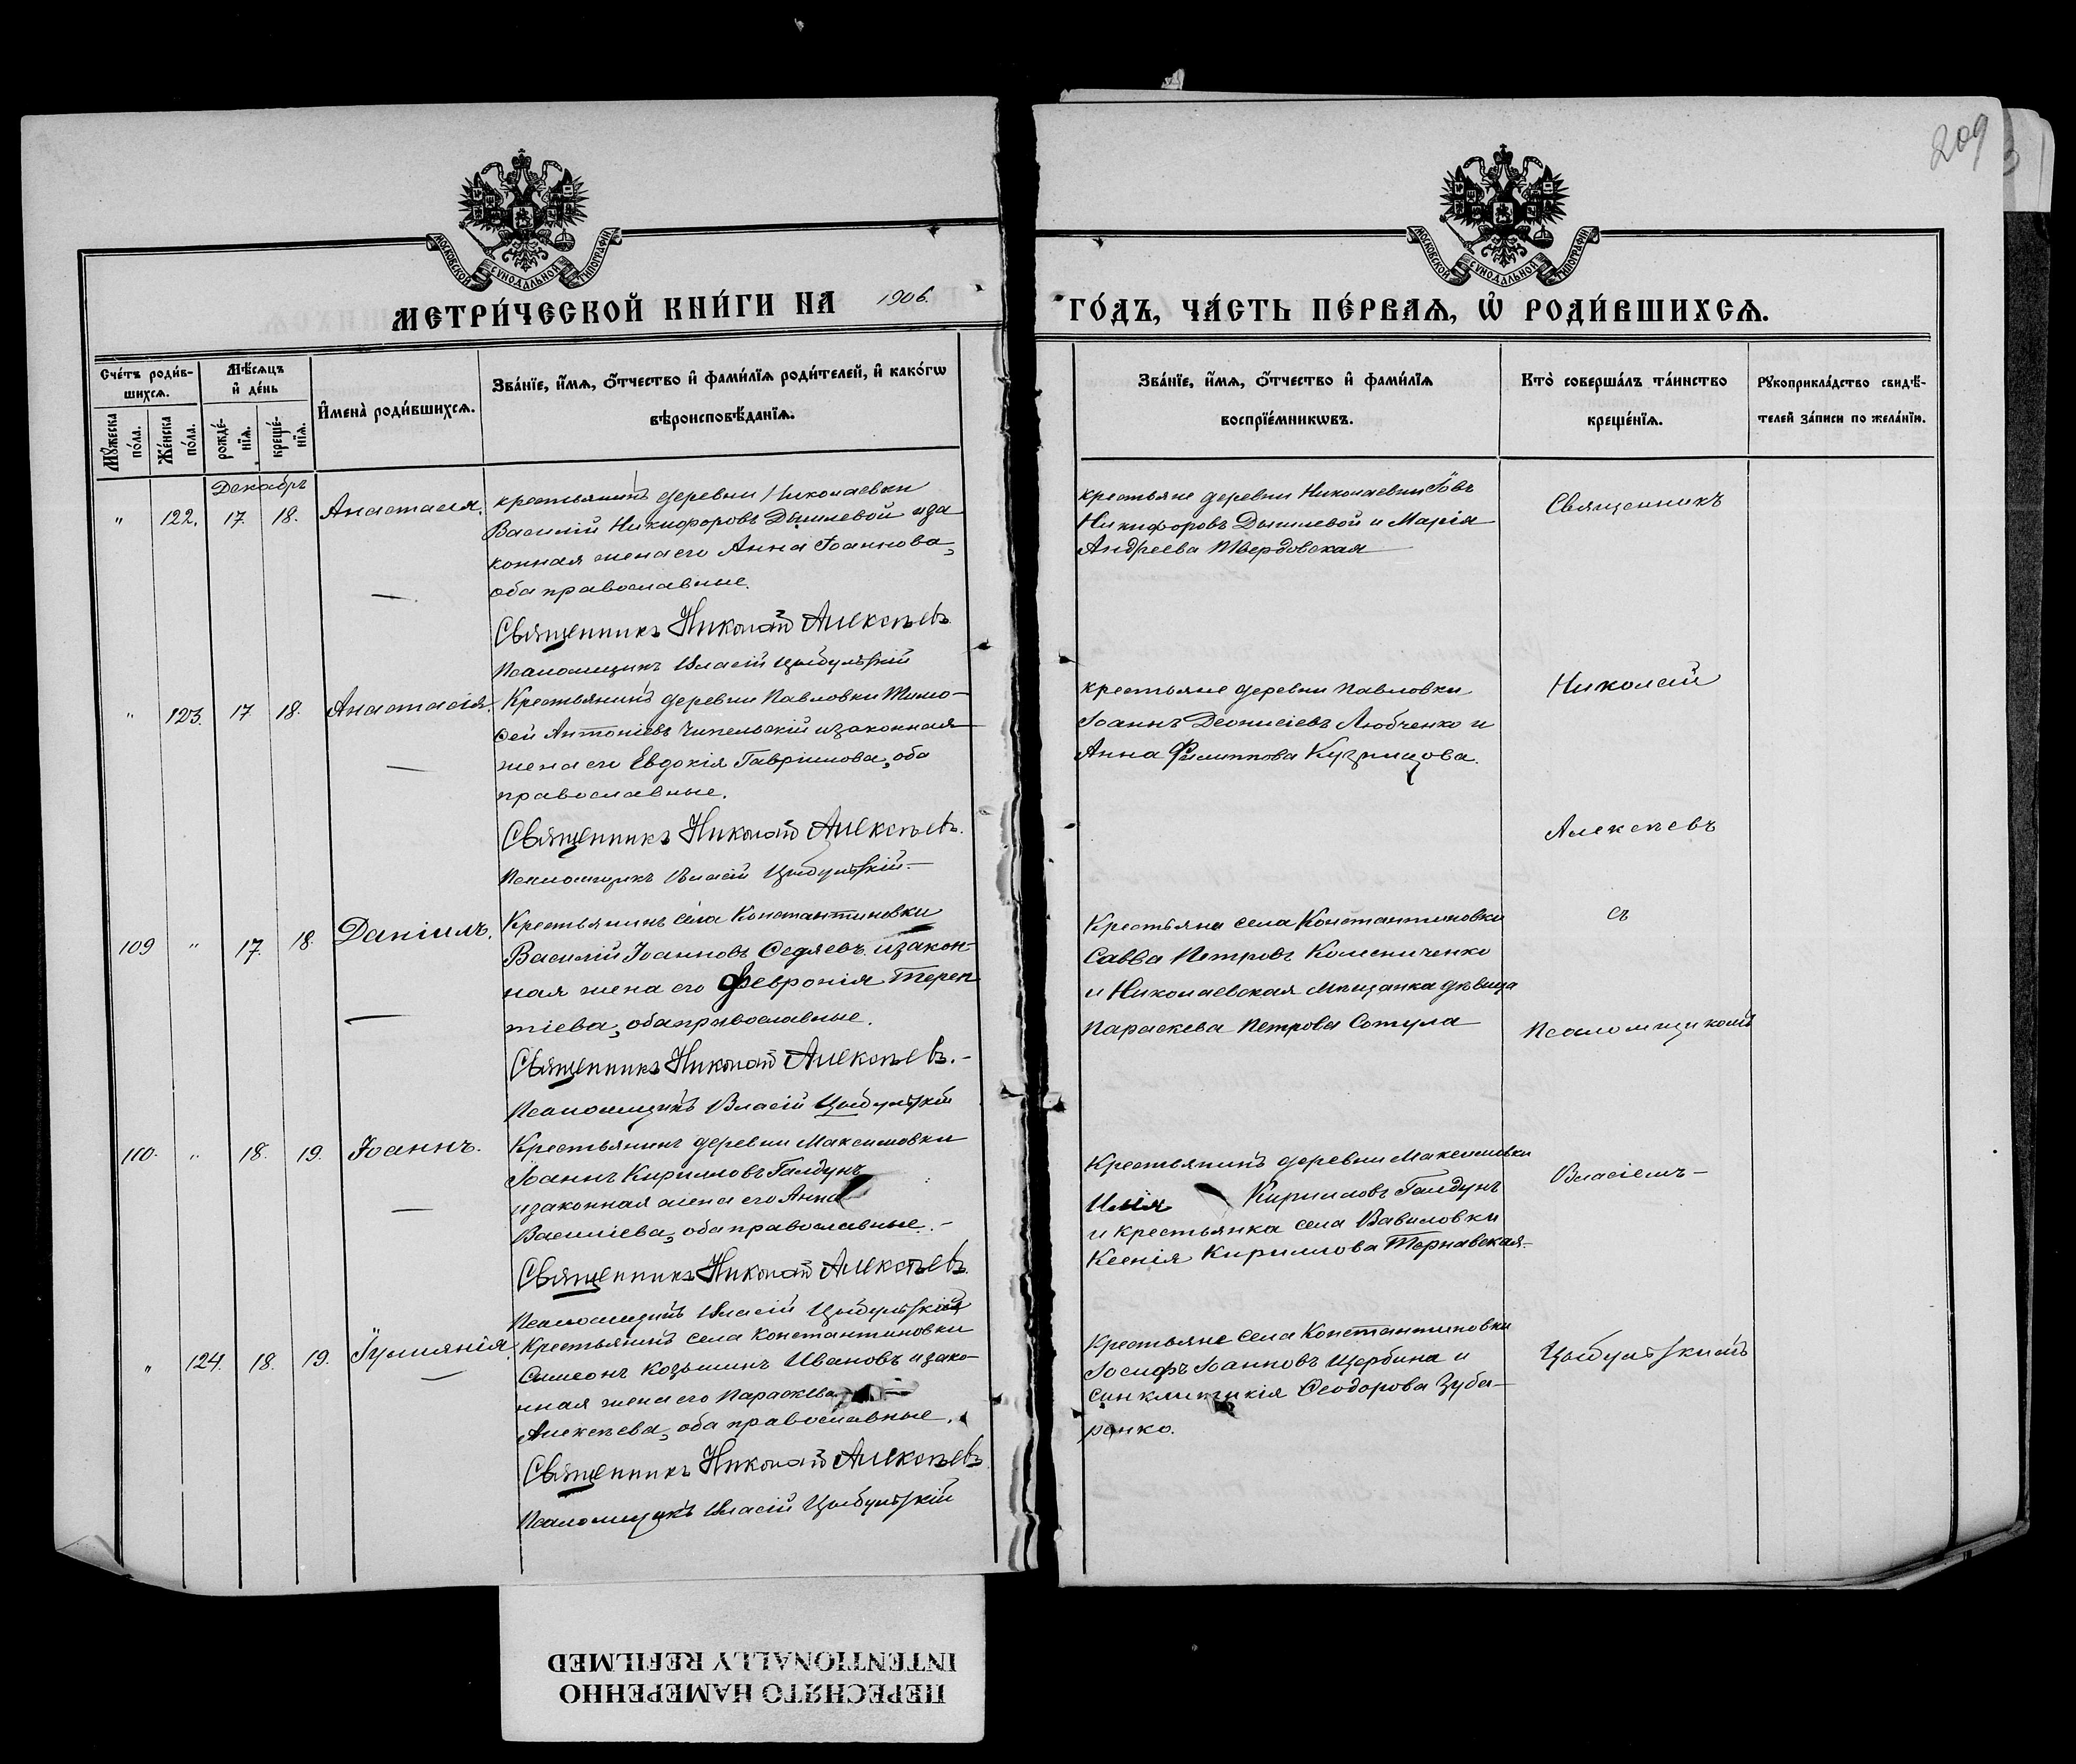 209
МОСКОВСКОЙ СУНОДАЛЬНОЙ ТИПОГРАФІИ
МОСКОВСКОЙ СУНОДАЛЬНОЙ ТИПОГРАФІИ
МЕТРИ́ЧЕСКОЙ КНИ́ГИ НА 1906.
ГО́ДЪ, ЧА́СТЬ ПЕ́РВАѦ, Ѽ РОДИ́ВШИХСѦ.
Сче́тъ роди́в-
шихсѧ.
Мꙋ́жеска по́ла.
Же́нска по́ла.
Мѣ́сѧцъ
и҆ де́нь
рожде́-
нїѧ.
креще́-
нїѧ.
И҆мена̀ роди́вшихсѧ.
Зва́нїе, и҆́мѧ, ѻ҆́тчество и҆ фами́лїѧ роди́телей, и҆ како́гѡ
вѣроисповѣ́данїѧ.
Зва́нїе, и҆́мѧ, ѻ҆́тчество и҆ фами́лїѧ
воспрїе́мникѡвъ.
Кто̀ соверша́лъ та́инство
креще́нїѧ.
Рꙋкоприкла́дство свидѣ́-
телей за́писи по жела́нїю.
Декабрь
" 122. 17. 18. Анастасія.
крестьянинъ деревни Николаевки
Василій Никифоровъ Дышлевой и за
конная жена его Анна Іоаннова,
оба православные.
Священникъ Николай Алексѣевъ
Псаломщикъ Власій Цыбульскій
крестьяне деревни Николаевки Іовъ
Никифоровъ Дышлевой и Марія
Андреева Твердовская
Священникъ
" 123. 17. 18. Анастасія.
Крестьянинъ деревни Павловки Тимо-
ѳей Антоніевъ Чипельскій и законная
жена его Евдокія Гавріилова, оба
православные.
Священникъ Николай Алексѣевъ.
Псаломщикъ Власій Цыбульскій.
крестьяне деревни Павловки
Іоаннъ Діонисіевъ Любченко и
Анна Филиппова Кузнецова.
Николай
Алексѣевъ
109 " 17. 18. Даніилъ.
Крестьянинъ села Константиновки
Василій Іоанновъ Ѳедяевъ и закон-
ная жена его Февронія Терен
тіева, оба православные.
Священникъ Николай Алексѣевъ.
Псаломщикъ Власій Цыбульскій
Крестьяне села Константиновки
Савва Петровъ Колесниченко
и Николаевская мѣщанка дѣвица
Параскева Петрова Сотула
съ
Псаломщикомъ
110. " 18. 19. Іоаннъ.
Крестьянинъ деревни Максимовки
Іоаннъ Кирилловъ Галдунъ
и законная жена его Анна
Василіева, оба православные.
Священникъ Николай Алексѣевъ.
Псаломщикъ Власій Цыбульскій
Крестьянинъ деревни Максимовки
Илія Кирилловъ Галдунъ
и крестьянка села Вавиловки
Ксенія Кириллова Тернавская.
Власіемъ
" 124. 18. 19. Іуліанія.
Крестьянинъ села Константиновки
Симеонъ Козьминъ Ивановъ и зако-
нная жена его Параскева
Алексѣева, оба православные.
Священникъ Николай Алексѣевъ
Псаломщикъ Власій Цыбульскій
Крестьяне села Константиновки
Іосифъ Іоанновъ Щербина и
Синклитикія Ѳеодорова Зуба-
ренко.
Цыбульскимъ
ПЕРЕСНЯТО НАМЕРЕННО
INTENTIONALLY REFILMED